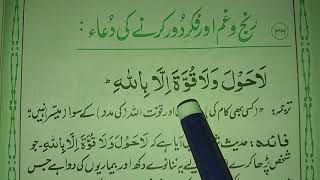 ۳۷ رنج و غم اور فکر دُور کرنے کی دُعاء :
لَاحَوْلَ وَلَا قُوَّةَ اِلَّا بِاللّٰهِ ط
ترجمہ: ”(کسی بھی کام کی اور قوت اللہ (کی مدد) کے سوا میسر نہیں“
فائدہ: حدیث میں آیا ہے کہ لَاحَوْلَ وَلَا قُوَّةَ اِلَّا بِاللّٰهِ۔ جو
شخص پڑھا کرے یہ ننانوے دکھ اور بیماریوں کی دوا ہے جس